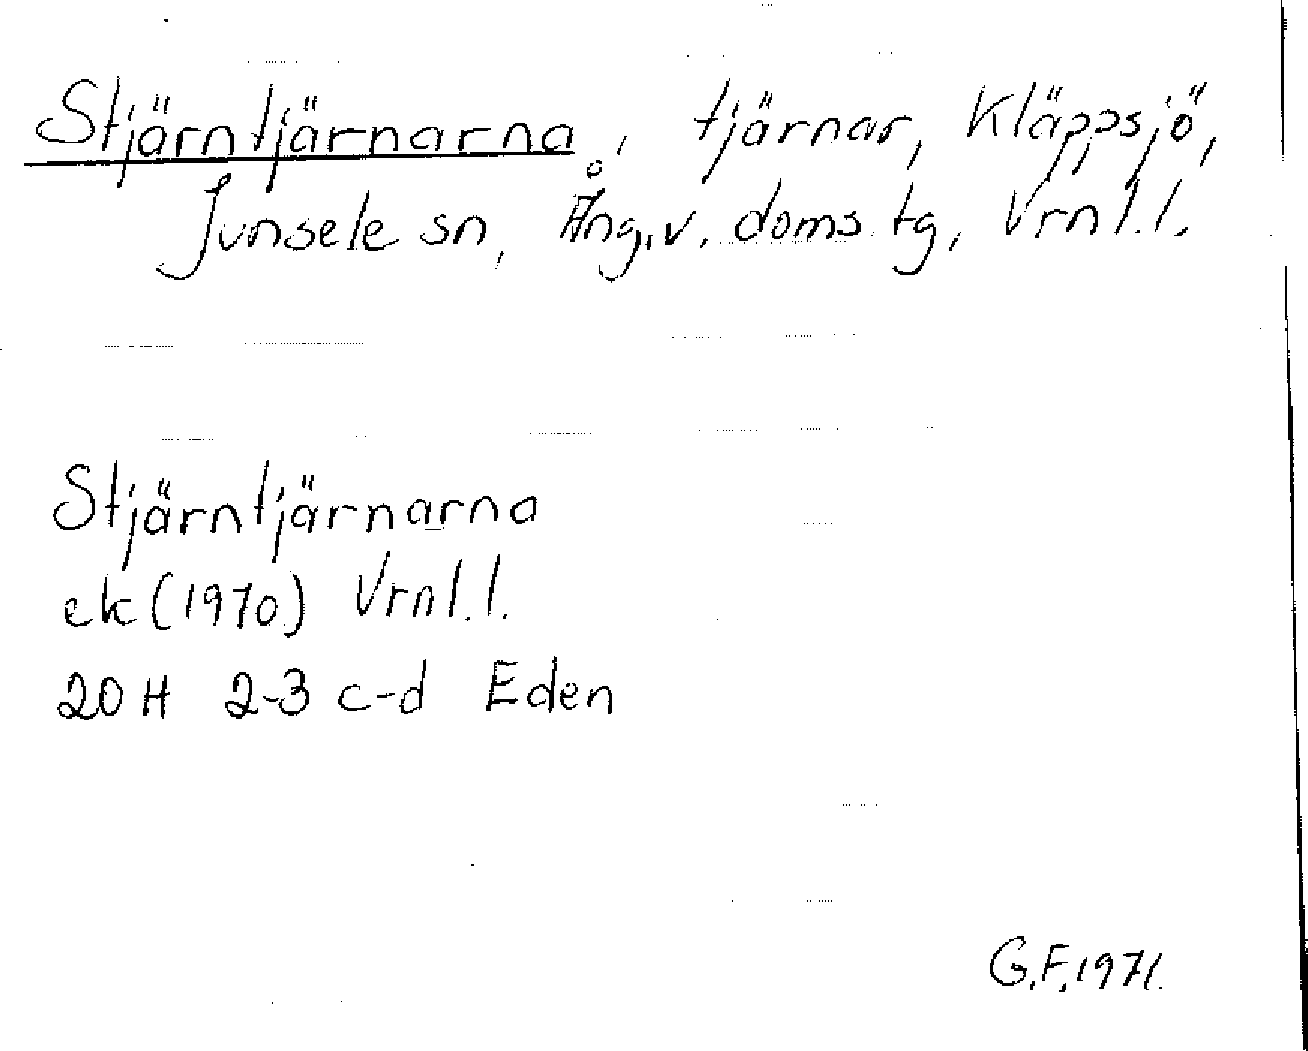 Stjärntjärnarna, tjärnar, Kläppsjö,
Junsele sn, Ång.v. doms tg, Vrnl.l.
Stjärntjärnarna
ek (1970) Vrnl.l.
20 H 2-3 c-d Eden
G.F. 1971.